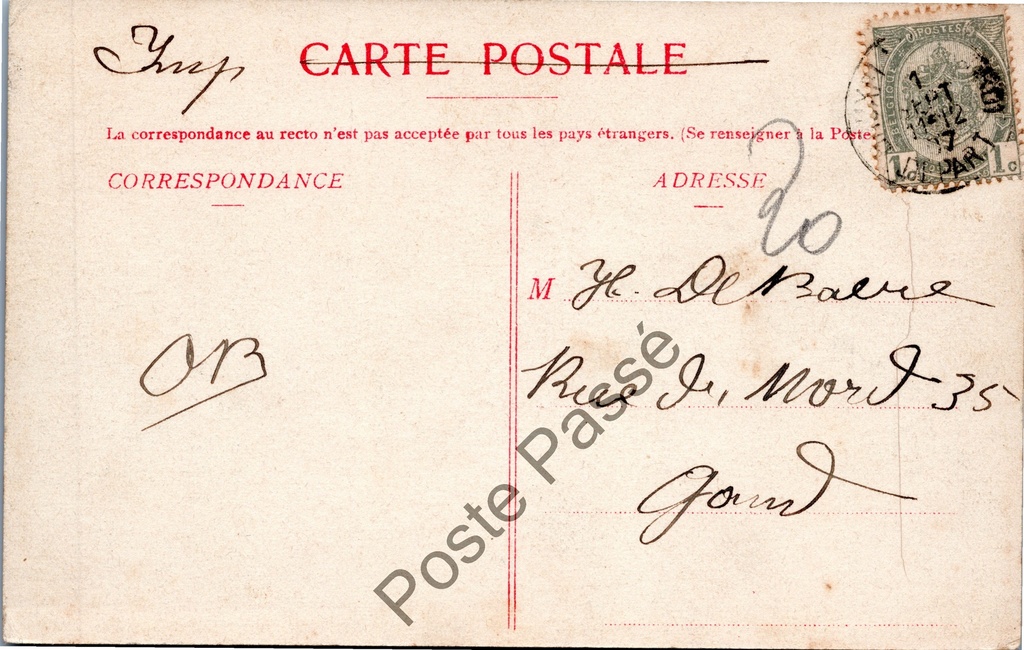 Imp
CARTE POSTALE
La correspondance au recto n'est pas acceptée par tous les pays étrangers. (Se renseigner à la Poste
CORRESPONDANCE
ADRESSE
20
M H. De Baere
Rue d. Nord 35
Gand
OB
POSTES
BELGIQUE
1c 1c
1
SEPT
11-12
DEPART
Poste Passé